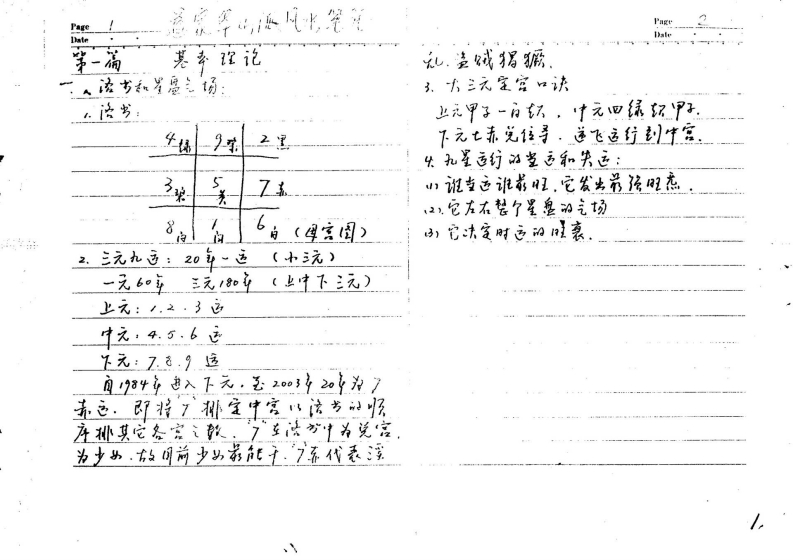 Page 1
Date
第一篇 基本理论
一、洛书和星盘气场:
1. 洛书:
4绿 9紫 2黑
3碧 5黄 7赤
8白 1白 6白 (母宫图)
2. 三元九运: 20年一运 (小三元)
一元60年 三元180年 (上中下三元)
上元: 1.2.3运
中元: 4.5.6运
下元: 7.8.9运
自1984年进入下元,至2003年20年为7
赤运. 即将"7"排定中宫以洛书的顺
序排其它各宫之数. "7"在洛书中为兑宫.
为少女.故目前少女最能干."7"赤代表淫
Page 2
Date
乱.盗贼猖獗.
3. 大三元定宫口诀
上元甲子一白起. 中元四绿起甲子.
下元七赤兑位寻. 逆飞运行到中宫.
4. 九星运行的当运和失运:
(1) 谁当运谁最旺.它发出最强旺炁.
(2). 它左右整个星盘的气场
(3) 它决定时运的旺衰.
1.